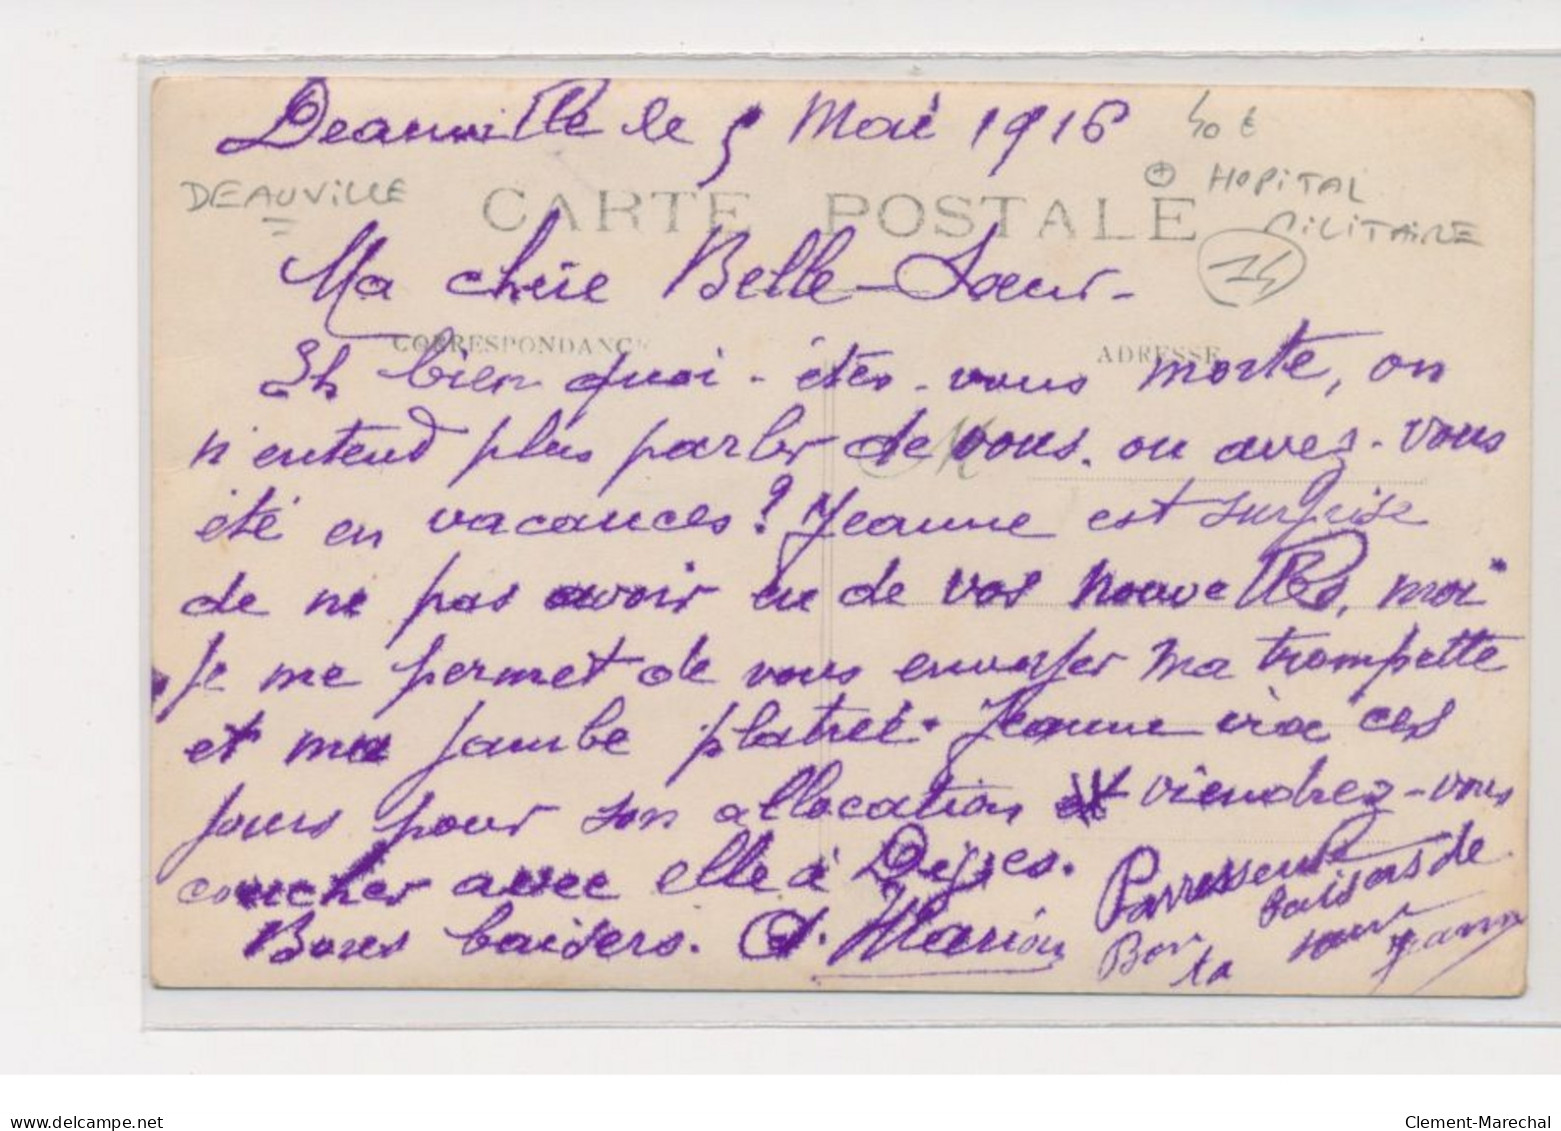 Deauville le 5 Mai 1916
40 €
DEAUVILLE
HOPITAL
MILITAIRE
14
CARTE POSTALE
Ma chère Belle-Sœur-
CORRESPONDANCE
ADRESSE
Eh bien quoi - êtes-vous morte, on
n'entend plus parler de vous. ou avez-vous
été en vacances? Jeanne est surprise
de ne pas avoir eu de vos nouvelles, moi
je me permet de vous envoyer ma trompette
et ma jambe platrée. Jeanne ira ces
jours pour son allocation et viendrez-vous
coucher avec elle à
Bons baisers. A. Marion
Paresseuse
Bon baisers de
ta sœur
Jeanne
Clement-Marechal
www.delcampe.net